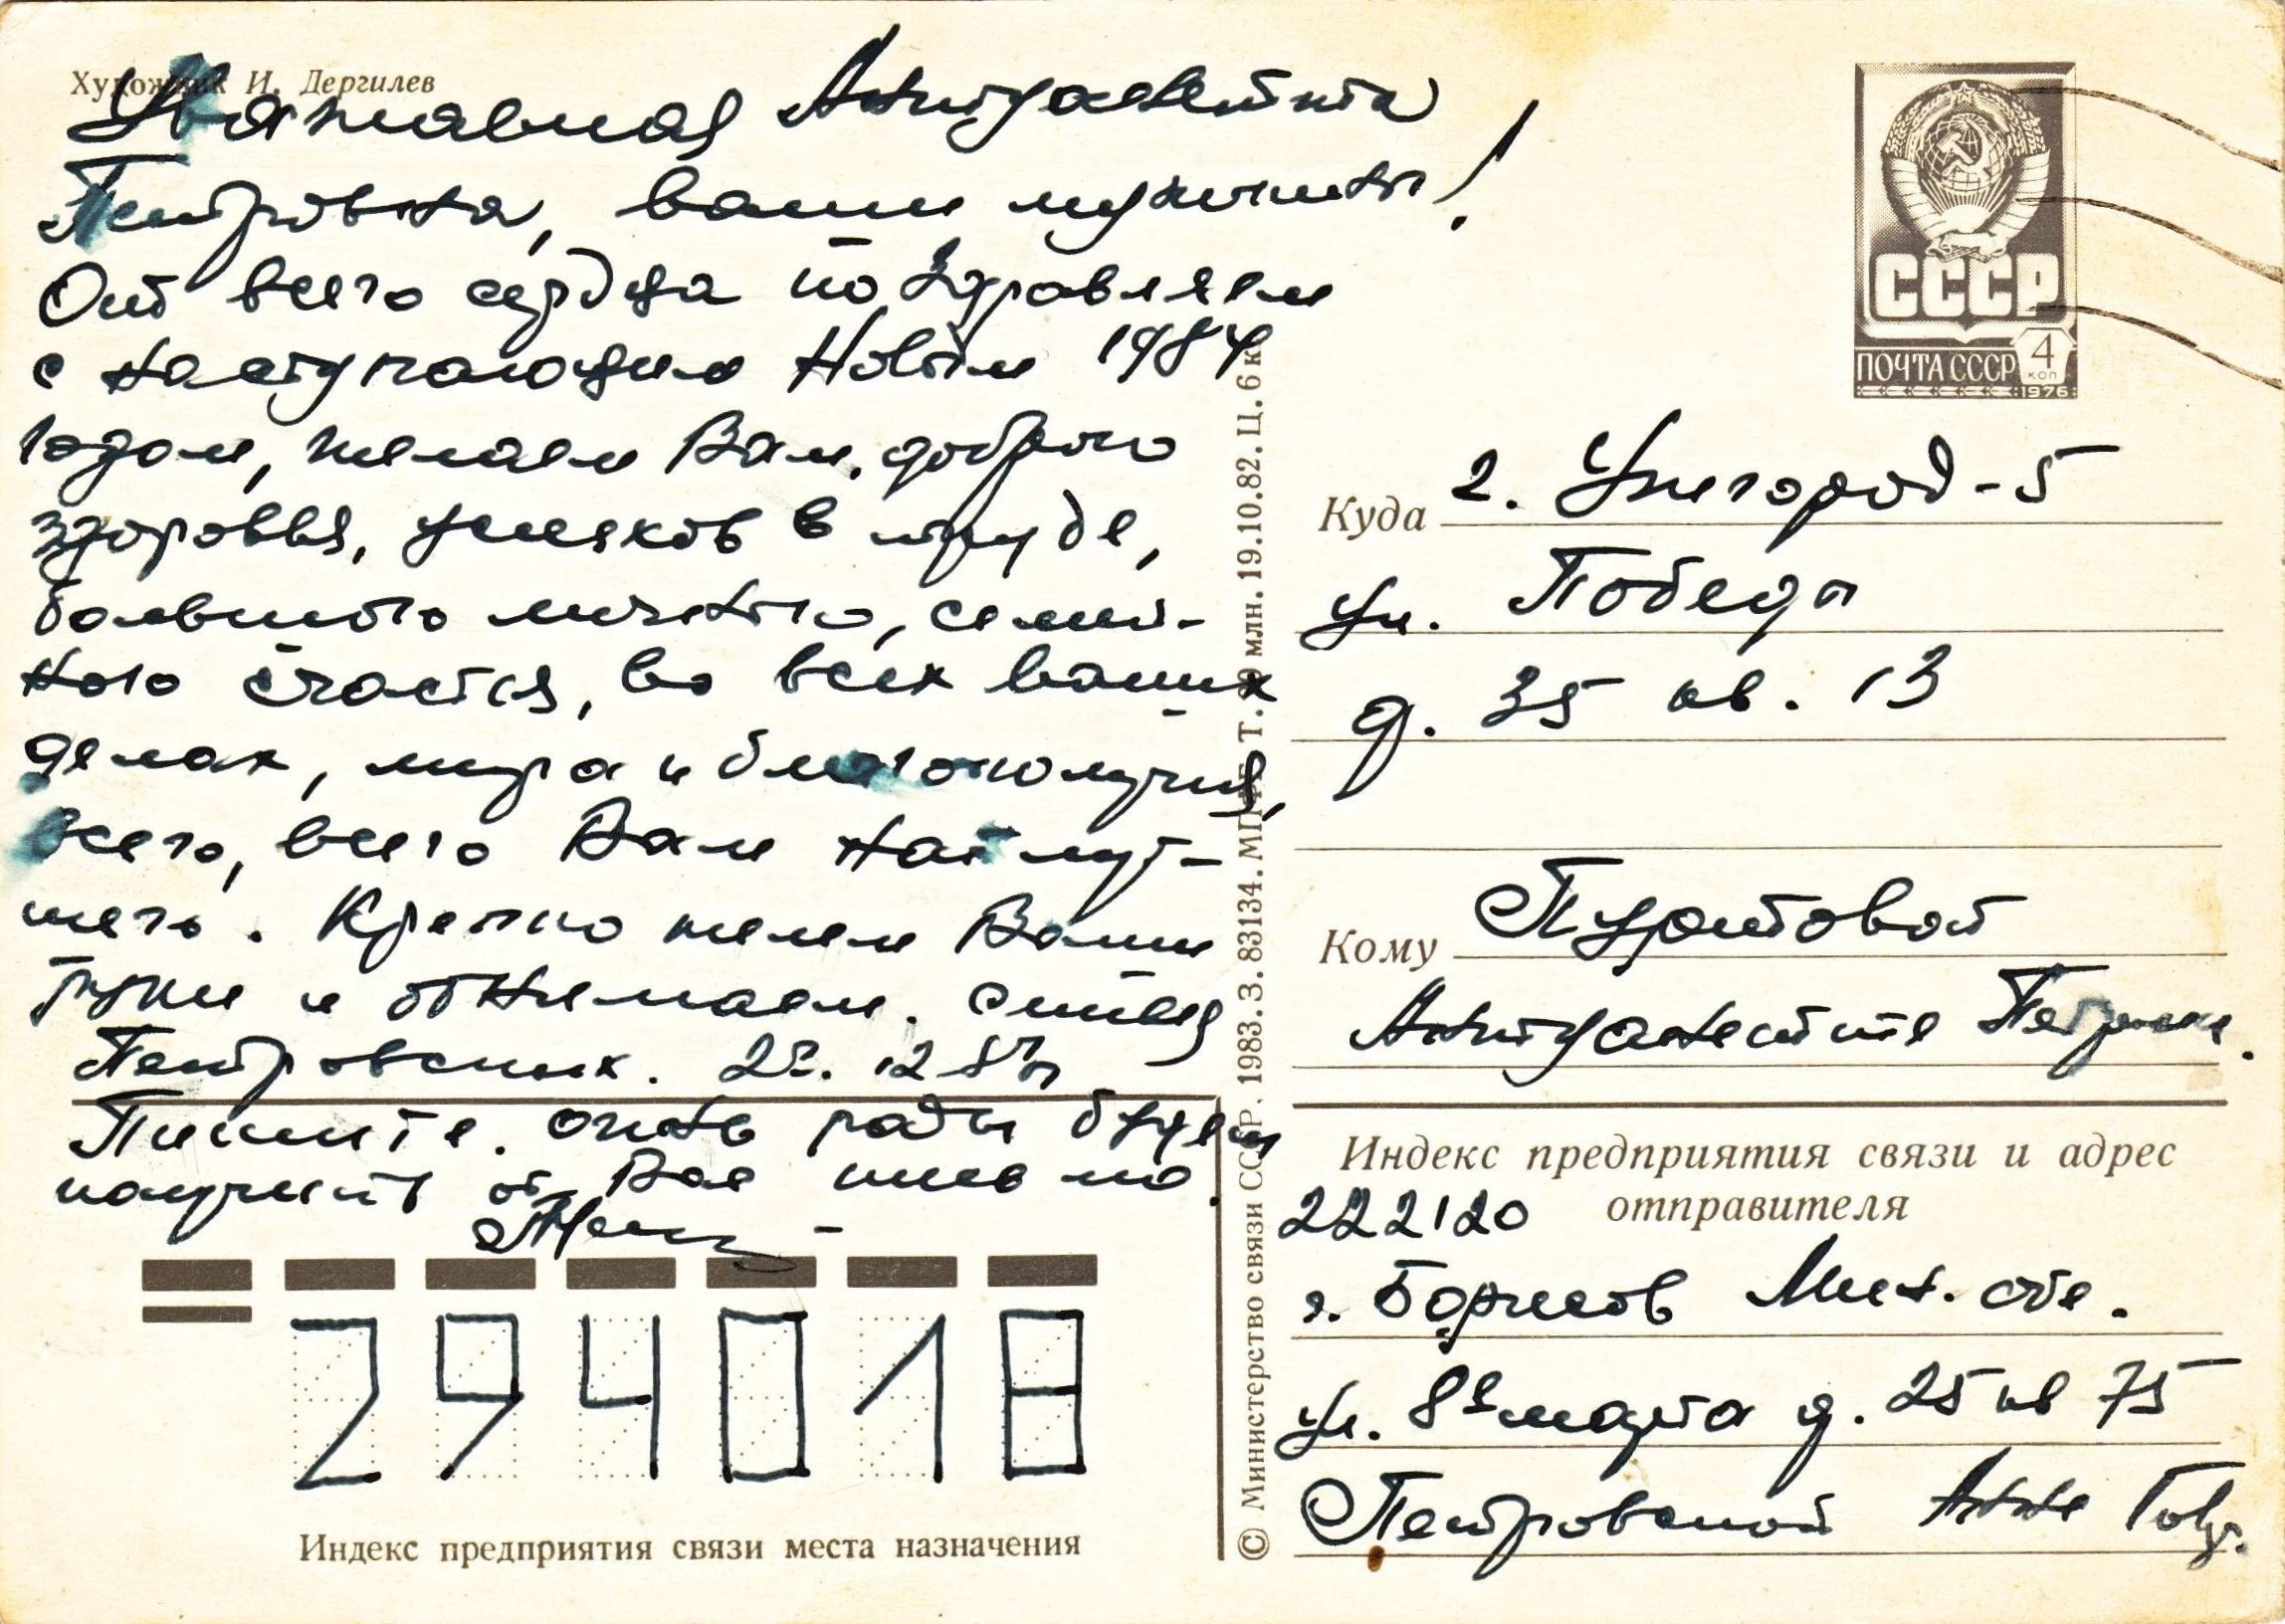 Художник И. Дергилев
Уважаемая Антуанетта
Петровна, ваши мужчины!
От всего сердца поздравляем
с наступающим Новым 1984
годом, желаем Вам доброго
здоровья, успехов в труде,
большого личного, семей-
ного счастья, во всех ваших
делах, мира и благополучия,
всего, всего Вам найлут-
шего. Крепко жмем Ваши
руки и обнимаем. Семья
Петровских. 12
Пишите. очень рады будем
получить от Вас письмо.
294018
Индекс предприятия связи места назначения
© Министерство связи СССР. 1983. З. 83134. МПФГ. Т. млн. 19.10.82. Ц. 6 к.
СССР
ПОЧТА СССР 4 КОП
1976
Куда г. Ужгород-5
ул. Победы
д. 35 кв. 13
Кому Пуртовой
Антуанетте Петровне.
Индекс предприятия связи и адрес
отправителя
222120
г. Борисов Мин. обл.
ул. 8е марта д. 25 кв 75
Петровской Анне